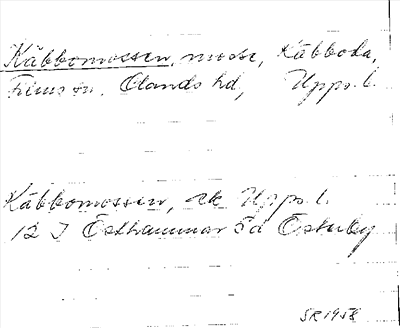 Käbbomossen, mosse, Käbboda,
Films sn, Olands hd, Upps. l.
Käbbomossen, ek Upps. l.
12 I Östhammar 5d Österby
SR 1958